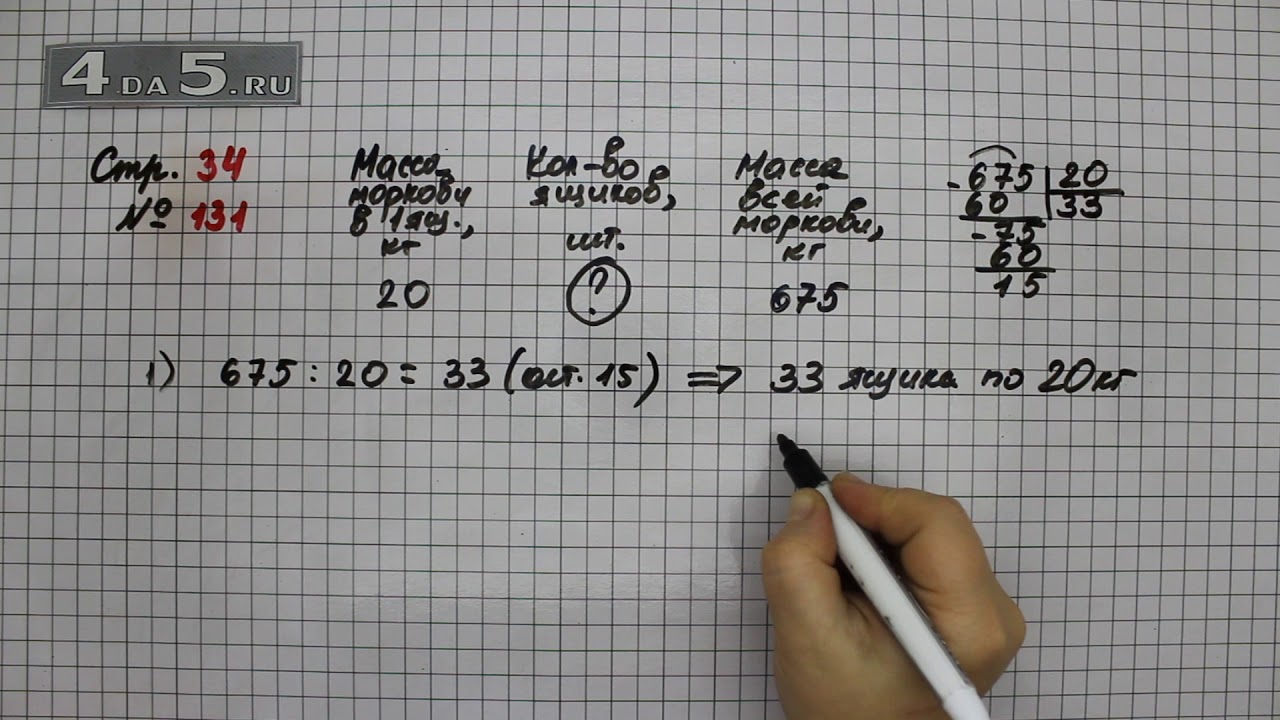 4 DA 5.RU
Стр. 34
№ 131
Масса
моркови
в 1 ящ.,
кг
20
Кол-во
ящиков,
шт.
?
Масса
всей
моркови,
кг
675
- 675 | 20
60 33
- 75
60
15
1) 675 : 20 = 33 (ост. 15) => 33 ящика по 20 кг